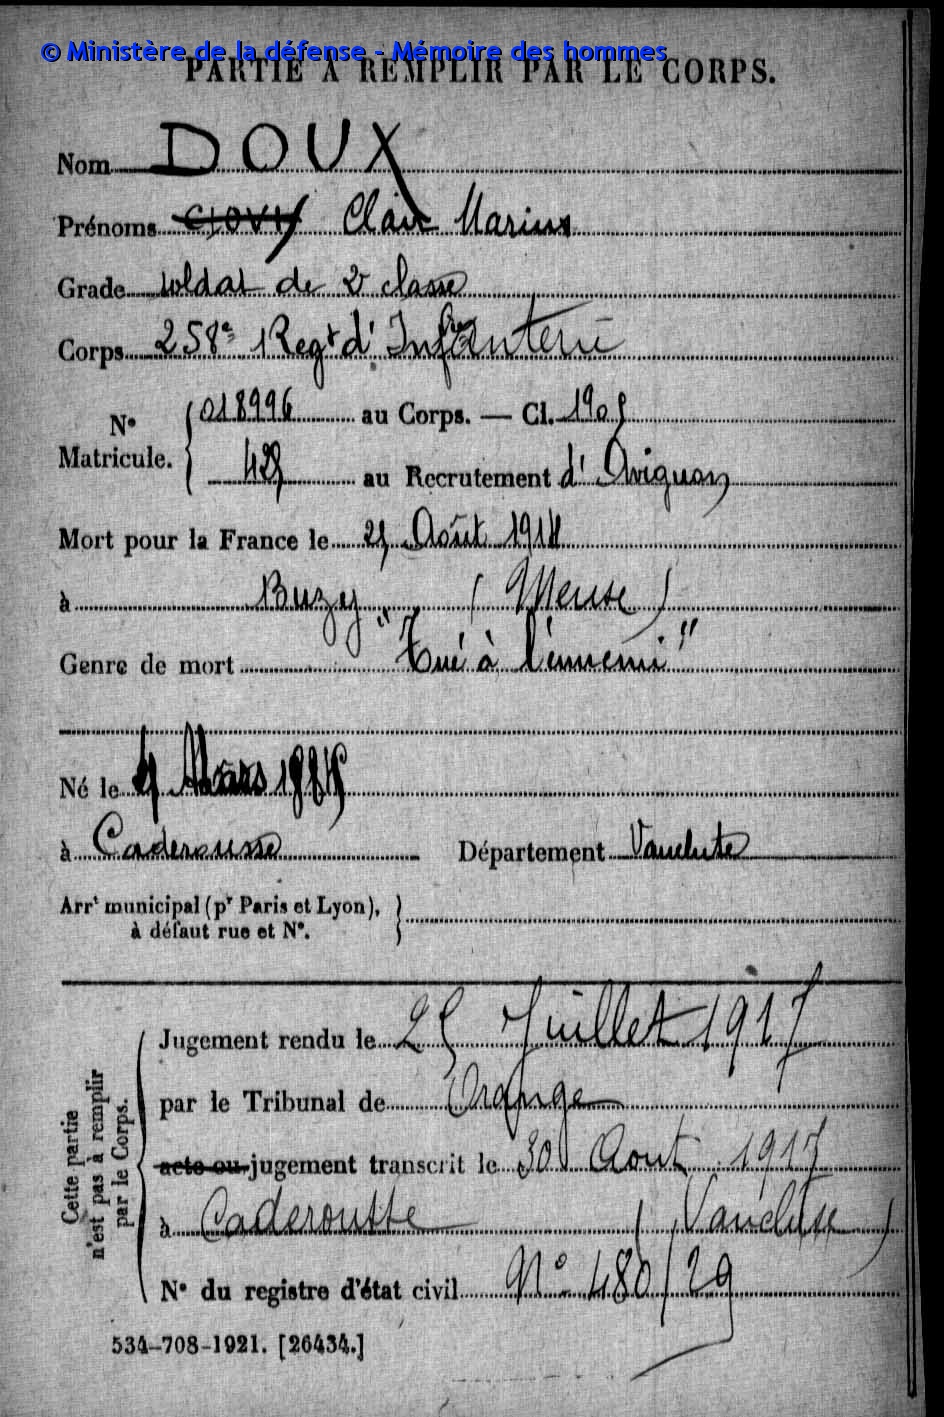 © Ministère de la défense - Mémoire des hommes
PARTIE A REMPLIR PAR LE CORPS.
Nom DOUX
Prénoms Clovis Clair Marius
Grade soldat de 2e classe
Corps 258e Regt d'Infanterie
N° Matricule. 018996 au Corps. — Cl. 1905
429 au Recrutement d'Avignon
Mort pour la France le Août 1914
à Buzy (Meuse)
Genre de mort "Tué à l'ennemi"
Né le 4 Mars 1885
à Caderousse Département Vaucluse
Arrt municipal (pr Paris et Lyon),
à défaut rue et N°.
Cette partie
n'est pas à remplir
par le Corps.
Jugement rendu le 25 Juillet 1917
par le Tribunal de Orange
acte ou jugement transcrit le 30 Aout 1917
à Caderousse (Vaucluse)
N° du registre d'état civil N° 480/29
534-708-1921. [26434.]